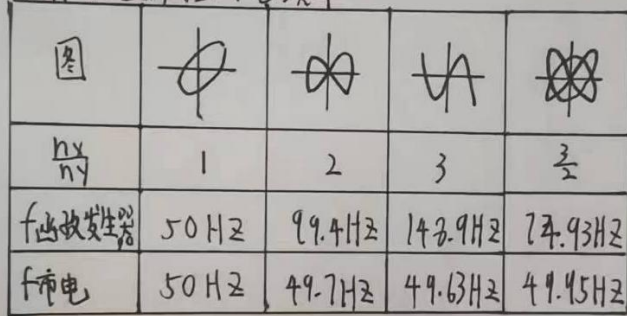 图
nx/ny 1 2 3 3/2
f函数发生器 50HZ 99.4HZ 148.9HZ 74.93HZ
f市电 50HZ 49.7HZ 49.63HZ 49.95HZ